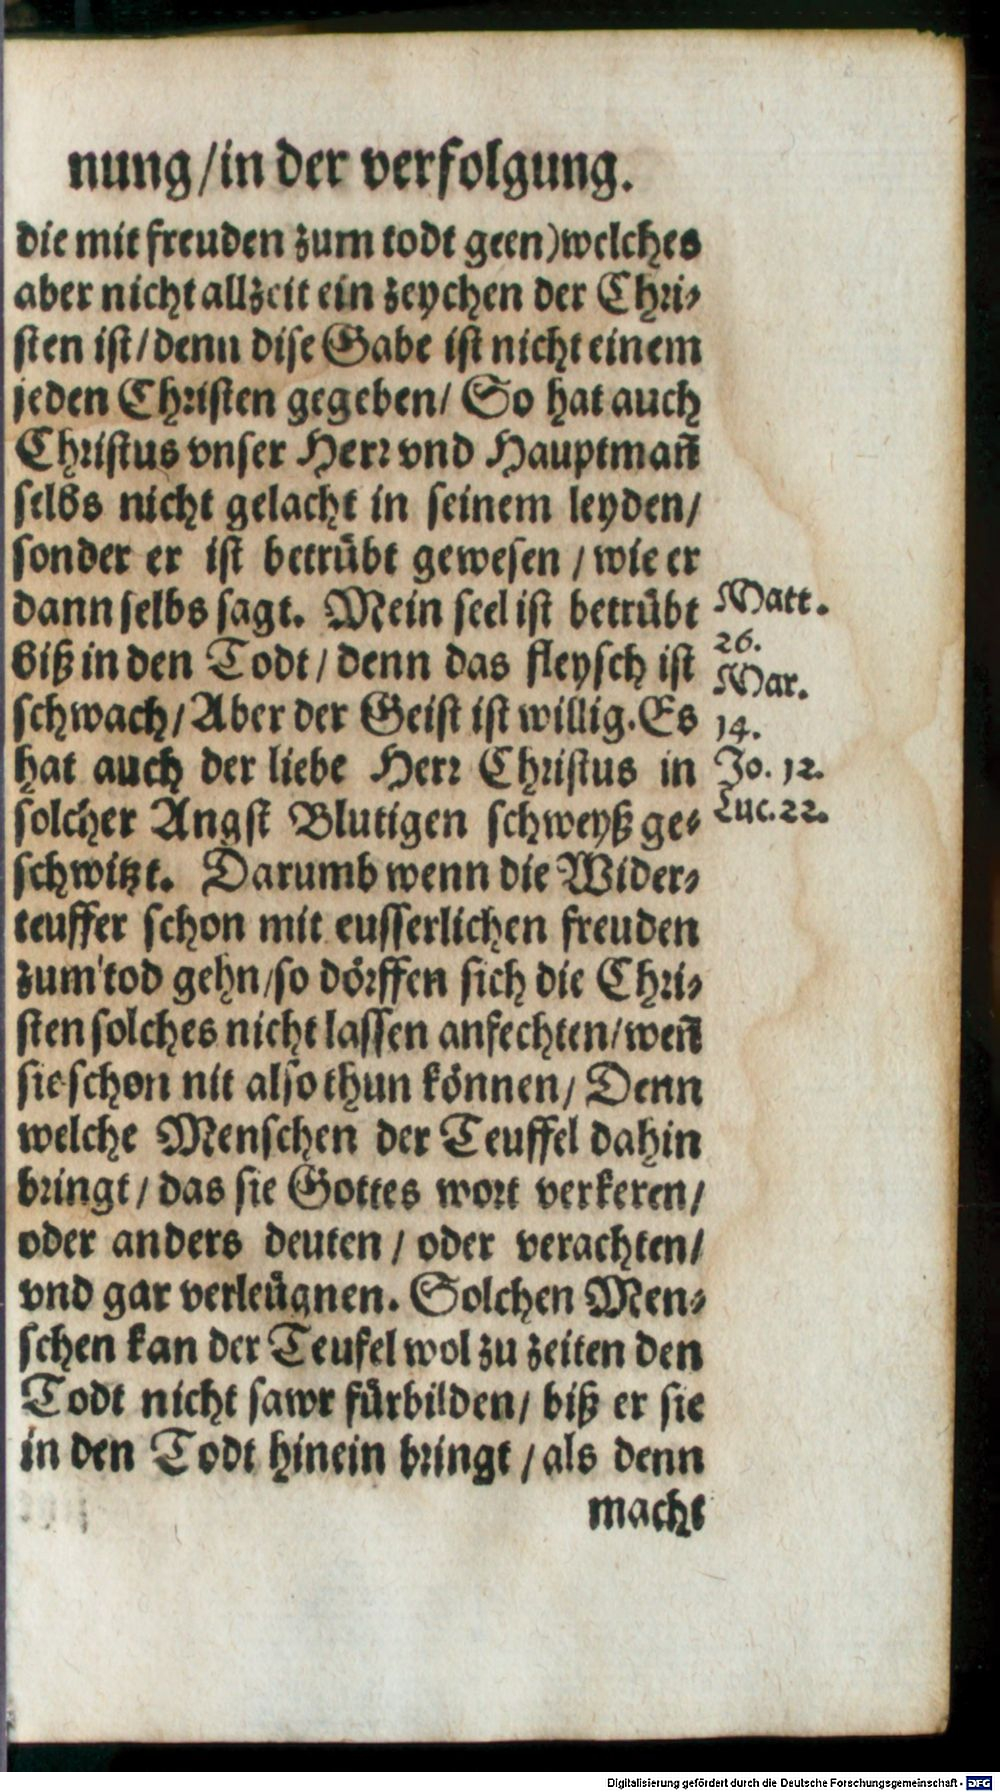 nung/in der verfolgung.
die mit freuden zum todt geen)welches
aber nicht allzeit ein zeychen der Chri⸗
sten ist/denn dise Gabe ist nicht einem
jeden Christen gegeben/ So hat auch
Christus vnser Herr vnd Hauptman̄
selbs nicht gelacht in seinem leyden/
sonder er ist betrübt gewesen / wie er
dann selbs sagt. Mein seel ist betrübt
biß in den Todt / denn das fleysch ist
schwach/Aber der Geist ist willig. Es
hat auch der liebe Herr Christus in
solcher Angst Blutigen schweyß ge⸗
schwitzt. Darumb wenn die Wider⸗
teuffer schon mit eusserlichen freuden
zum tod gehn/so dörffen sich die Chri⸗
sten solches nicht lassen anfechten/wen̄
sie schon nit also thun können/ Denn
welche Menschen der Teuffel dahin
bringt / das sie Gottes wort verkeren/
oder anders deuten / oder verachten/
vnd gar verleügnen. Solchen Men⸗
schen kan der Teufel wol zu zeiten den
Todt nicht sawr fürbilden/ biß er sie
in den Todt hinein bringt / als denn
macht
Matt.
26.
Mar.
14.
Jo. 12.
Luc. 22.
Digitalisierung gefördert durch die Deutsche Forschungsgemeinschaft - DFG